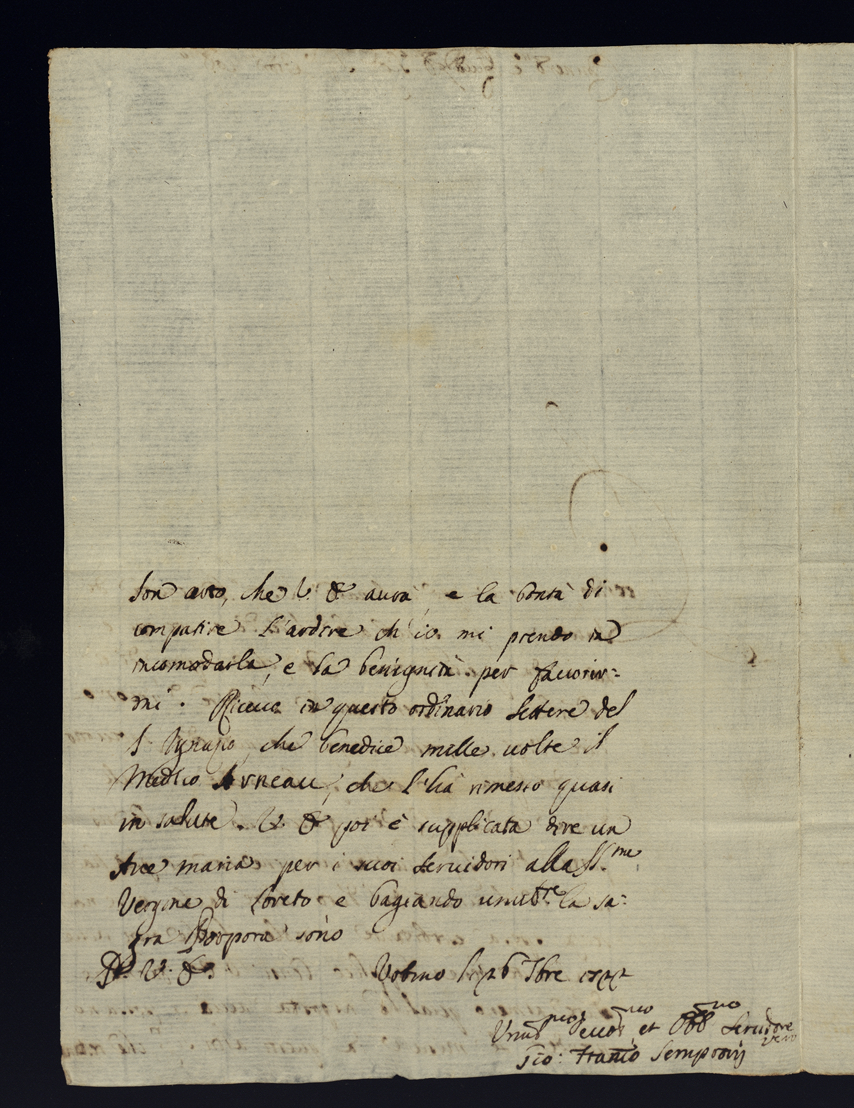 son certo, che V. E. aurà e la bontà di
compatire l'ardire ch'io mi prendo in
incomodarla, e la benignità per fauorir=
mi. Riceuo in questo ordinario lettere del
S. Ignazio, che benedice mille uolte il
Medico, che l'hà rimesso quasi
in salute. V. E. poi è supplicata dire un
Aue maria per i suoi seruidori alla SS.ma
Vergine di Loreto e bagiando umilte la sa=
gra Porpora sono
D. V. E. Urbino li 26 7bre
Umo Deuo et Obbmo Seruidore
vero
Gio: Franco Sempronij